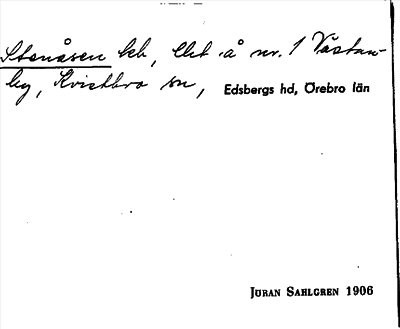 Stenåsen lhb, Ebt å nr. 1 Västan-
by, Kvistbro sn, Edsbergs hd, Örebro län
JÖRAN SAHLGREN 1906